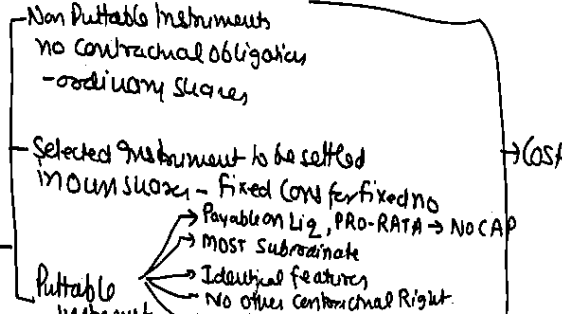 Non Puttable Instruments
no contractual obligation
- ordinary shares
Selected Instrument to be settled
in own shares - fixed Cons for fixed no
→ Payable on Liq, PRO-RATA → NO CAP
→ MOST Subordinate
→ Identical features
→ No other Contractual Right.
Puttable
→ Cost